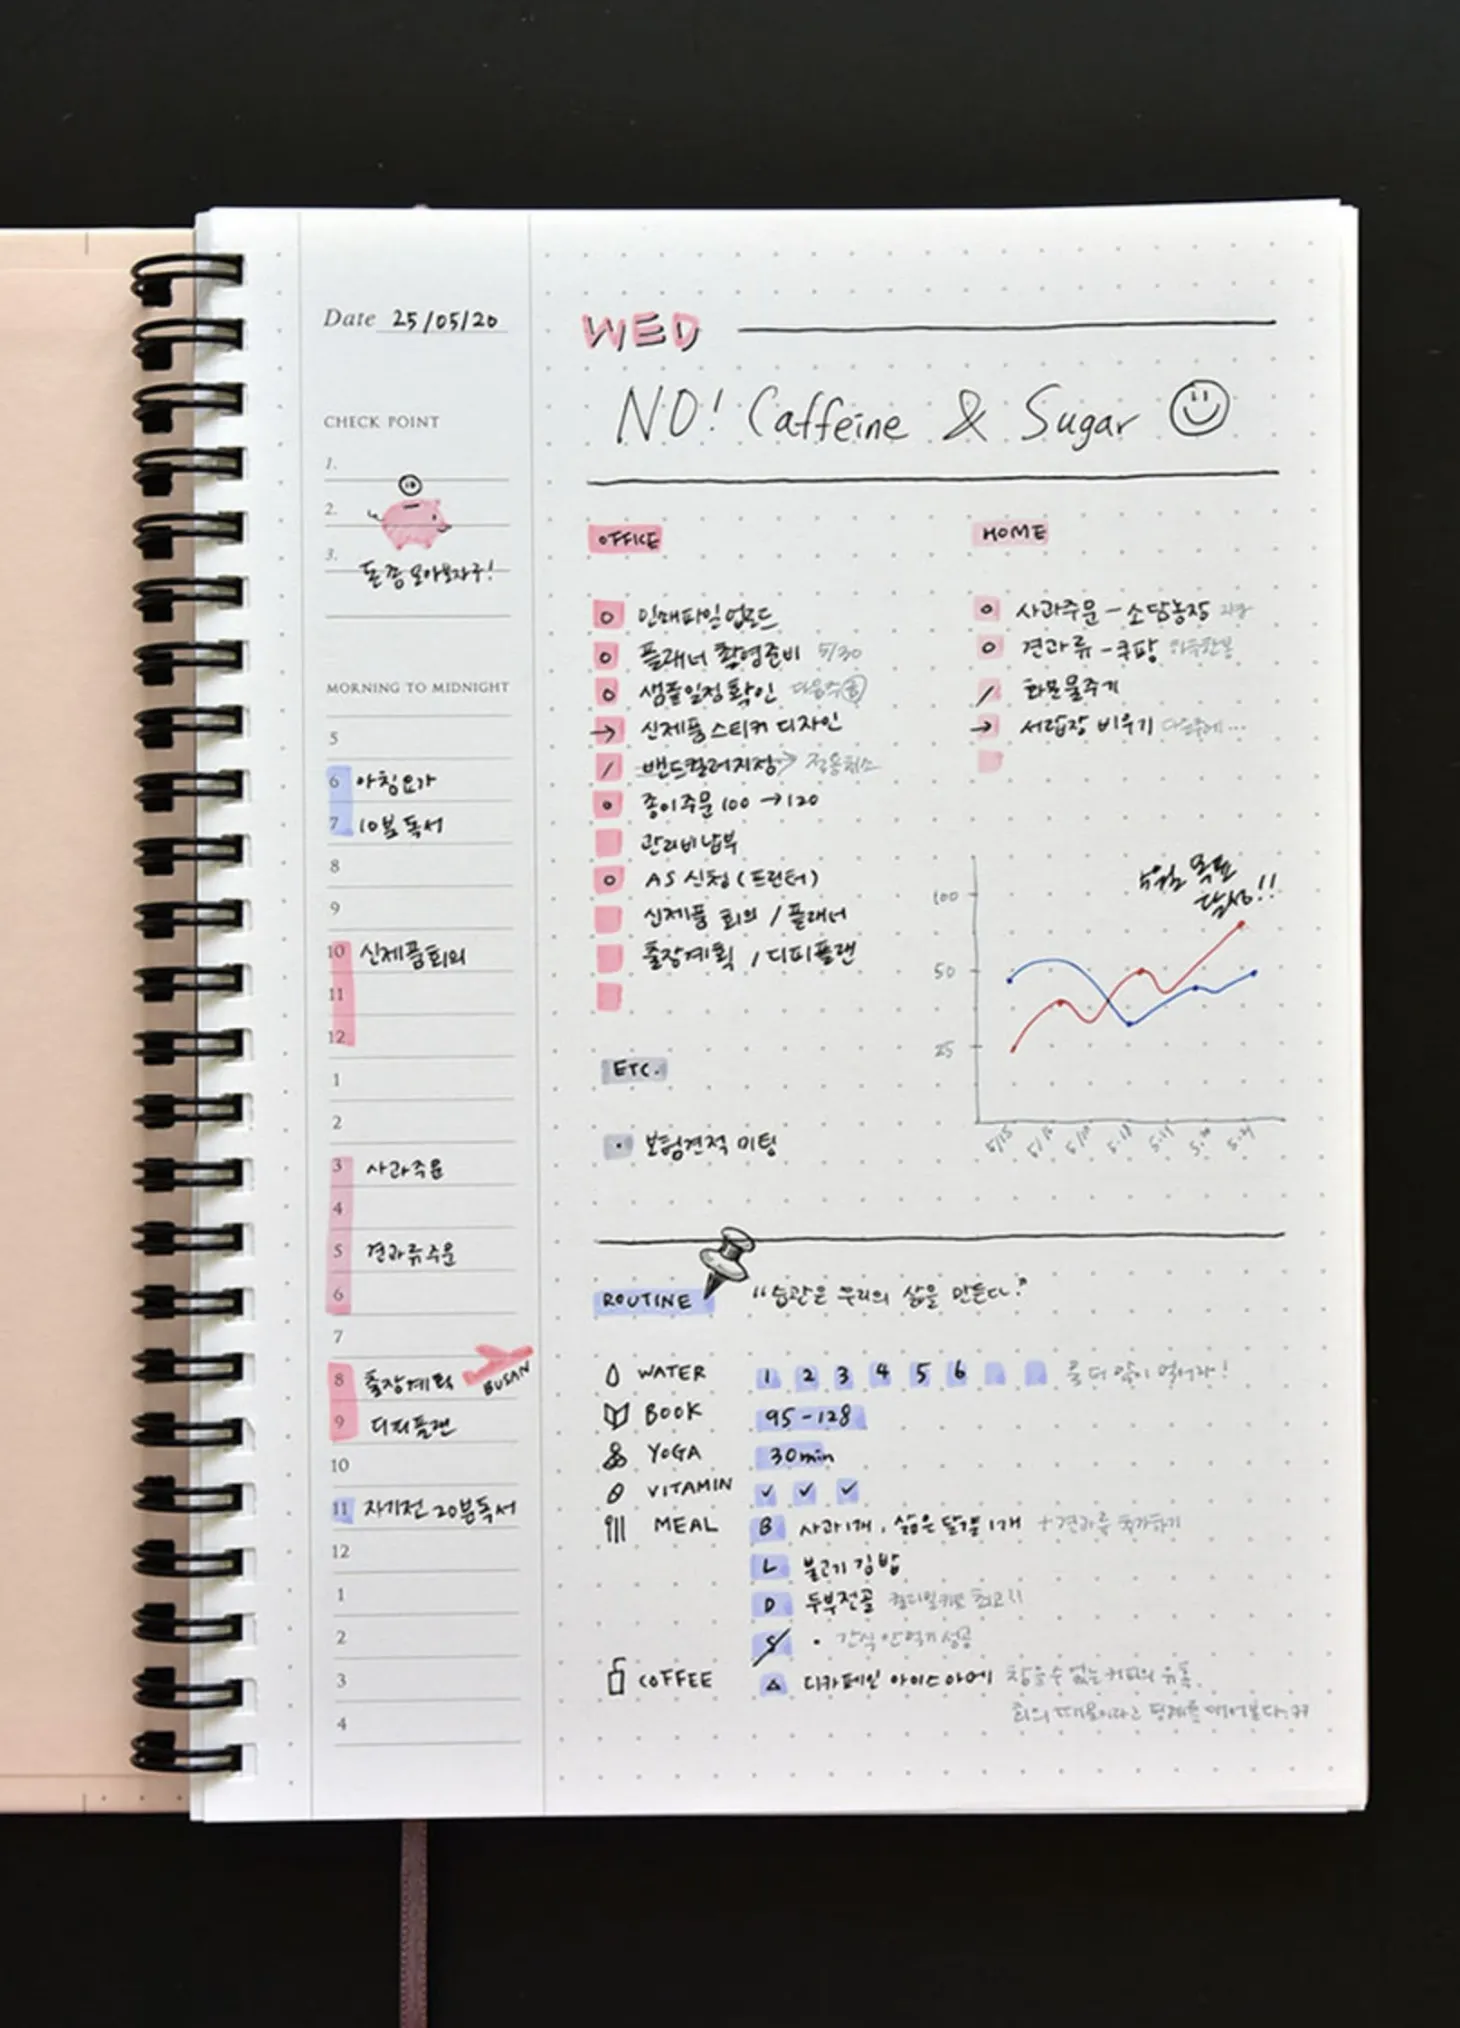 Date 25/05/20
CHECK POINT
1.
2.
3.
돈 좀 모아보자구!
MORNING TO MIDNIGHT
5
6 아침요가
7 10분 독서
8
9
10 신제품회의
11
12
1
2
3 사과주문
4
5 견과류주문
6
7
8 출장계획 BUSAN
9 디피플랜
10
11 자기전 20분독서
12
1
2
3
4
WED
NO! Caffeine & Sugar
OFFICE
인쇄파일 업로드
플래너 촬영준비 5/30
샘플일정 확인
→ 신제품 스티커 디자인
/ 밴드컬러지정
종이주문 100 → 120
관리비 납부
AS 신청 (프린터)
신제품 회의 / 플래너
출장계획 / 디피플랜
HOME
사과주문 - 소담농장
견과류 - 쿠팡
/ 화분물주기
→ 서랍장 비우기
5월 목표
달성!!
100
50
25
5/15 5/16 5.18 5.19 5.20 5.21
ETC.
보험견적 미팅
ROUTINE "습관은 우리의 삶을 만든다."
WATER 1 2 3 4 5 6 물 더 많이 먹어라!
BOOK 95-128
YOGA 30min
VITAMIN ✓ ✓ ✓
MEAL B 사과1개, 삶은 달걀 1개 + 견과류 추가하기
L 불고기 김밥
D 두부전골
S • 간식 안먹기 성공
COFFEE 디카페인 아이스 아메 참을 수 없는 커피의 유혹.
회의 때문이라고 핑계를 대어본다.ㅋㅋ